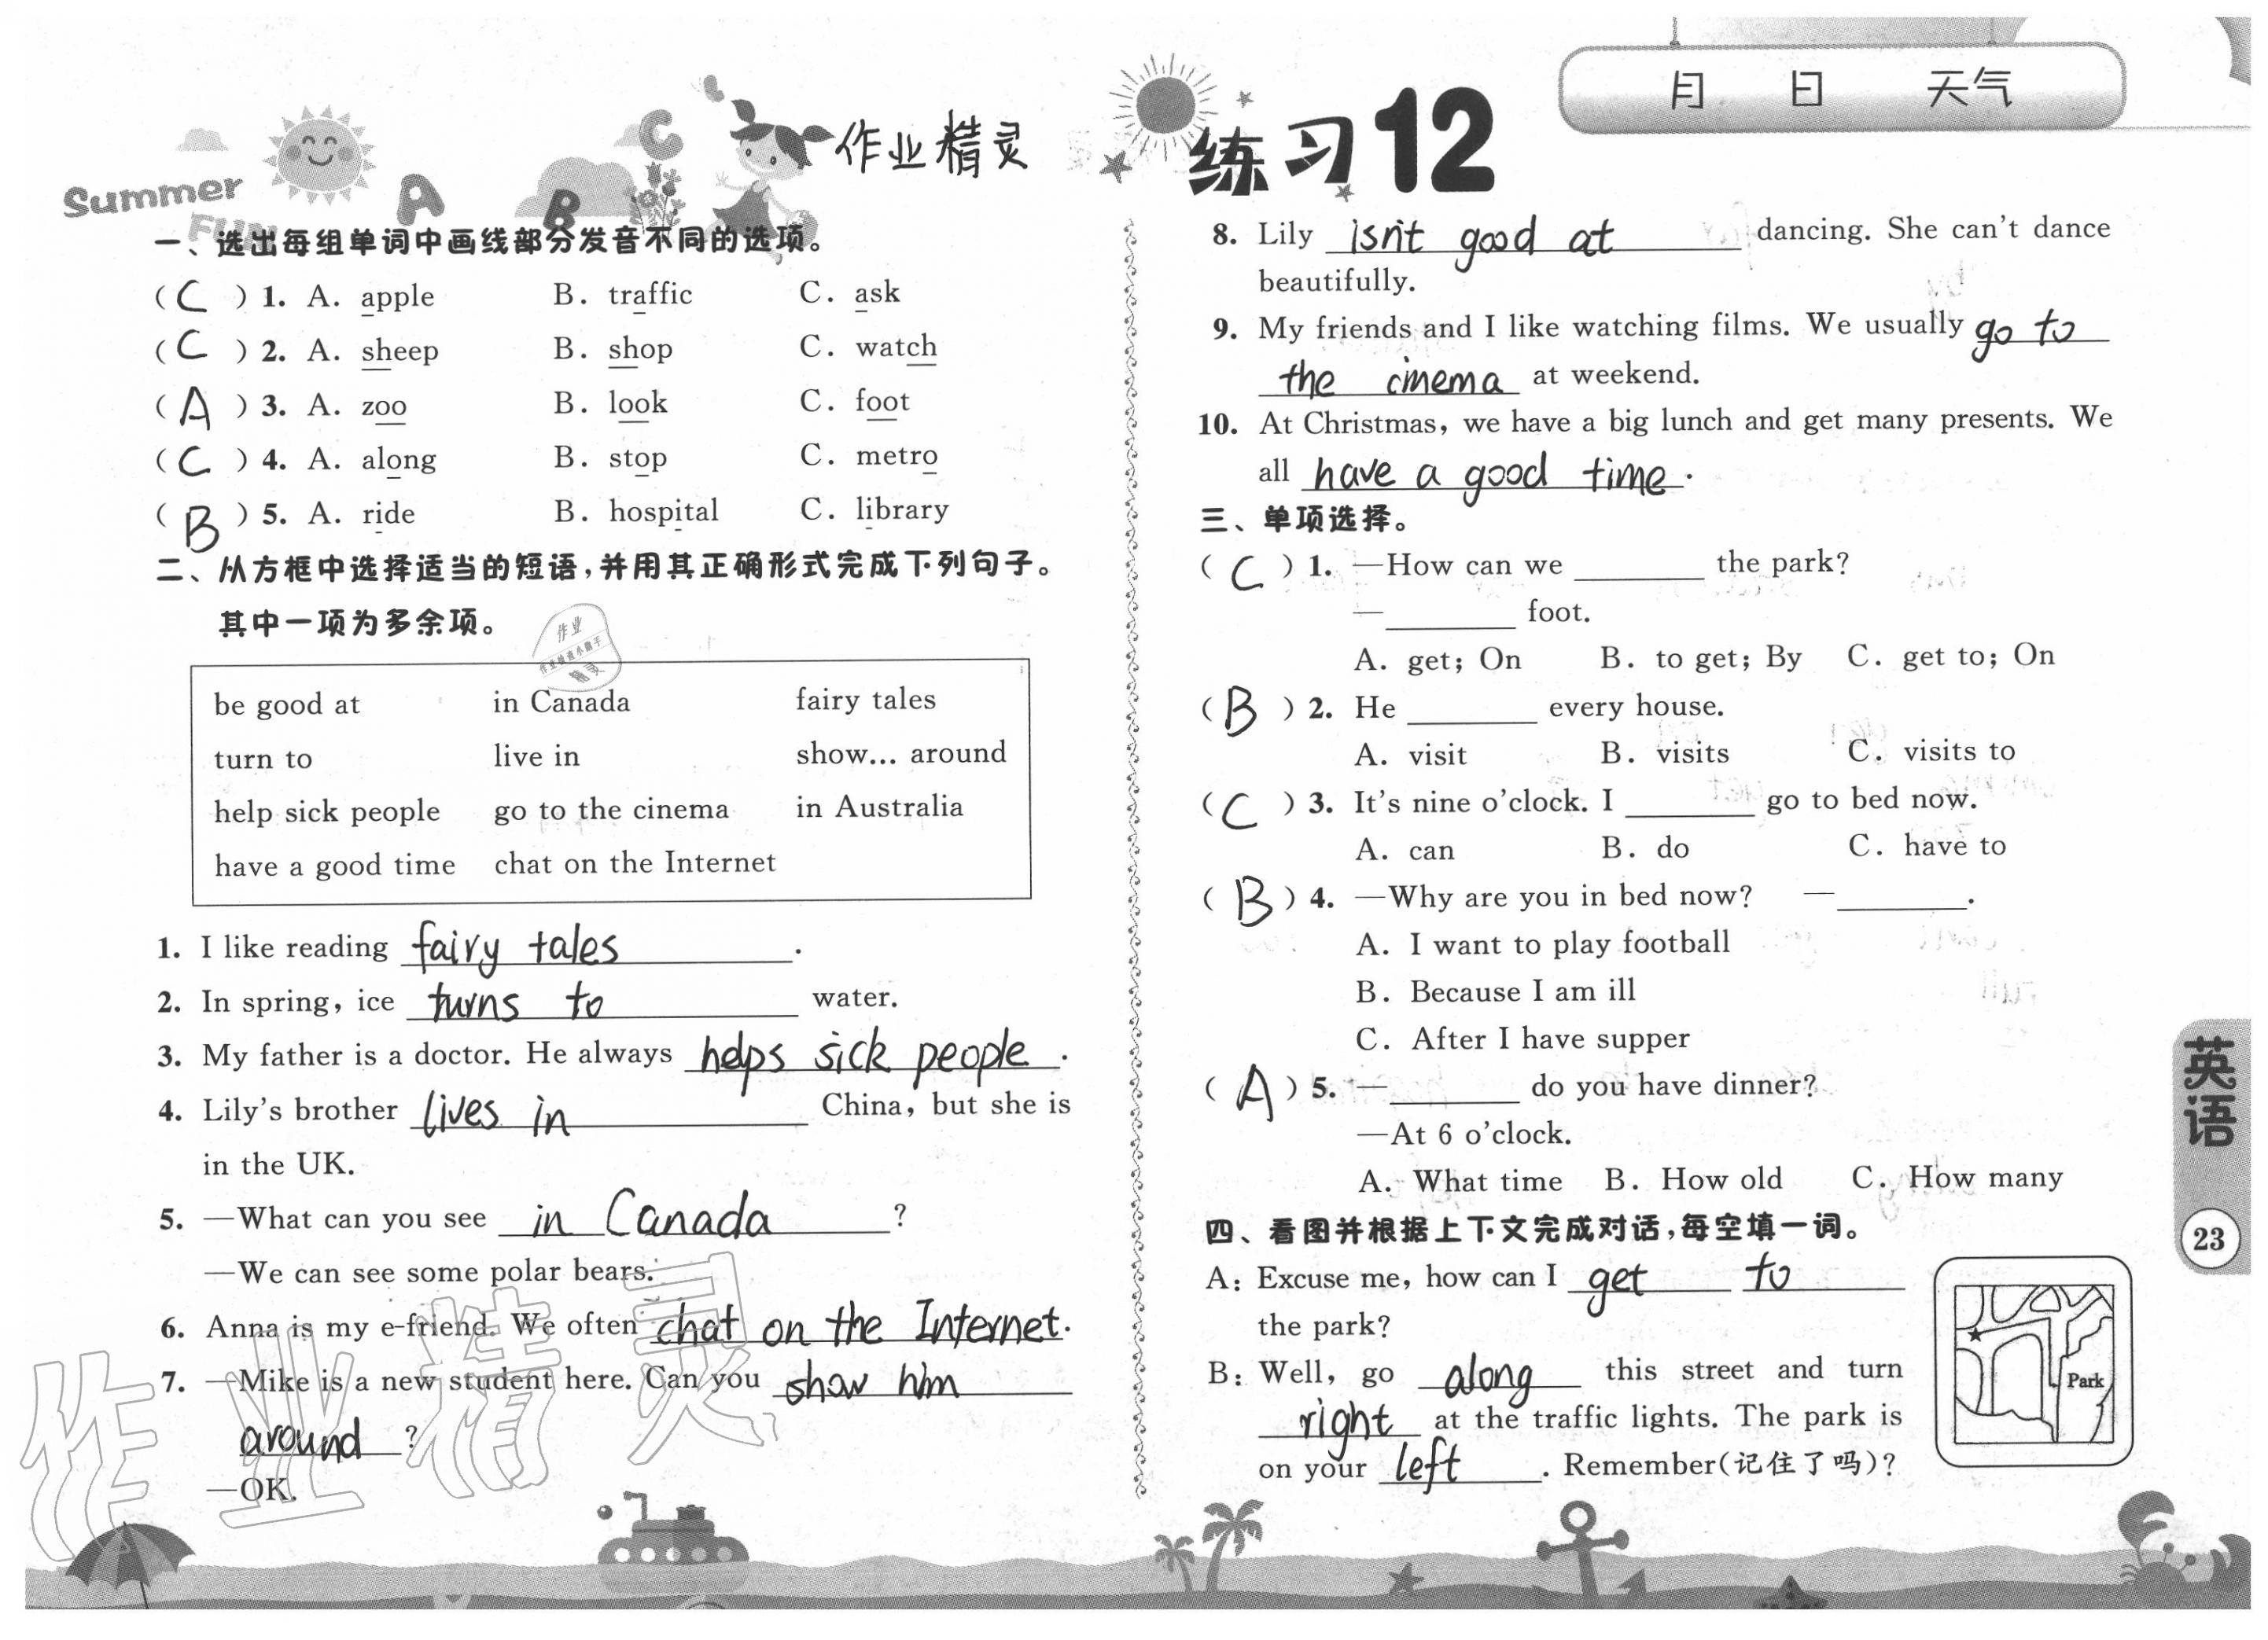 Summer
FUN
A B C
作业精灵
练习12
月 日 天气
一、选出每组单词中画线部分发音不同的选项。
( C ) 1. A. apple B. traffic C. ask
( C ) 2. A. sheep B. shop C. watch
( A ) 3. A. zoo B. look C. foot
( C ) 4. A. along B. stop C. metro
( B ) 5. A. ride B. hospital C. library
二、从方框中选择适当的短语,并用其正确形式完成下列句子。
其中一项为多余项。
be good at in Canada fairy tales
turn to live in show... around
help sick people go to the cinema in Australia
have a good time chat on the Internet
1. I like reading fairy tales.
2. In spring, ice turns to water.
3. My father is a doctor. He always helps sick people.
4. Lily's brother lives in China, but she is
in the UK.
5. —What can you see in Canada?
—We can see some polar bears.
6. Anna is my e-friend. We often chat on the Internet.
7. —Mike is a new student here. Can you show him
around?
—OK.
8. Lily isn't good at dancing. She can't dance
beautifully.
9. My friends and I like watching films. We usually go to
the cinema at weekend.
10. At Christmas, we have a big lunch and get many presents. We
all have a good time.
三、单项选择。
( C ) 1. —How can we ________ the park?
—________ foot.
A. get; On B. to get; By C. get to; On
( B ) 2. He ________ every house.
A. visit B. visits C. visits to
( C ) 3. It's nine o'clock. I ________ go to bed now.
A. can B. do C. have to
( B ) 4. —Why are you in bed now? —________.
A. I want to play football
B. Because I am ill
C. After I have supper
( A ) 5. —________ do you have dinner?
—At 6 o'clock.
A. What time B. How old C. How many
四、看图并根据上下文完成对话,每空填一词。
A: Excuse me, how can I get to
the park?
B: Well, go along this street and turn
right at the traffic lights. The park is
on your left. Remember(记住了吗)?
Park
英语
23
作业精灵